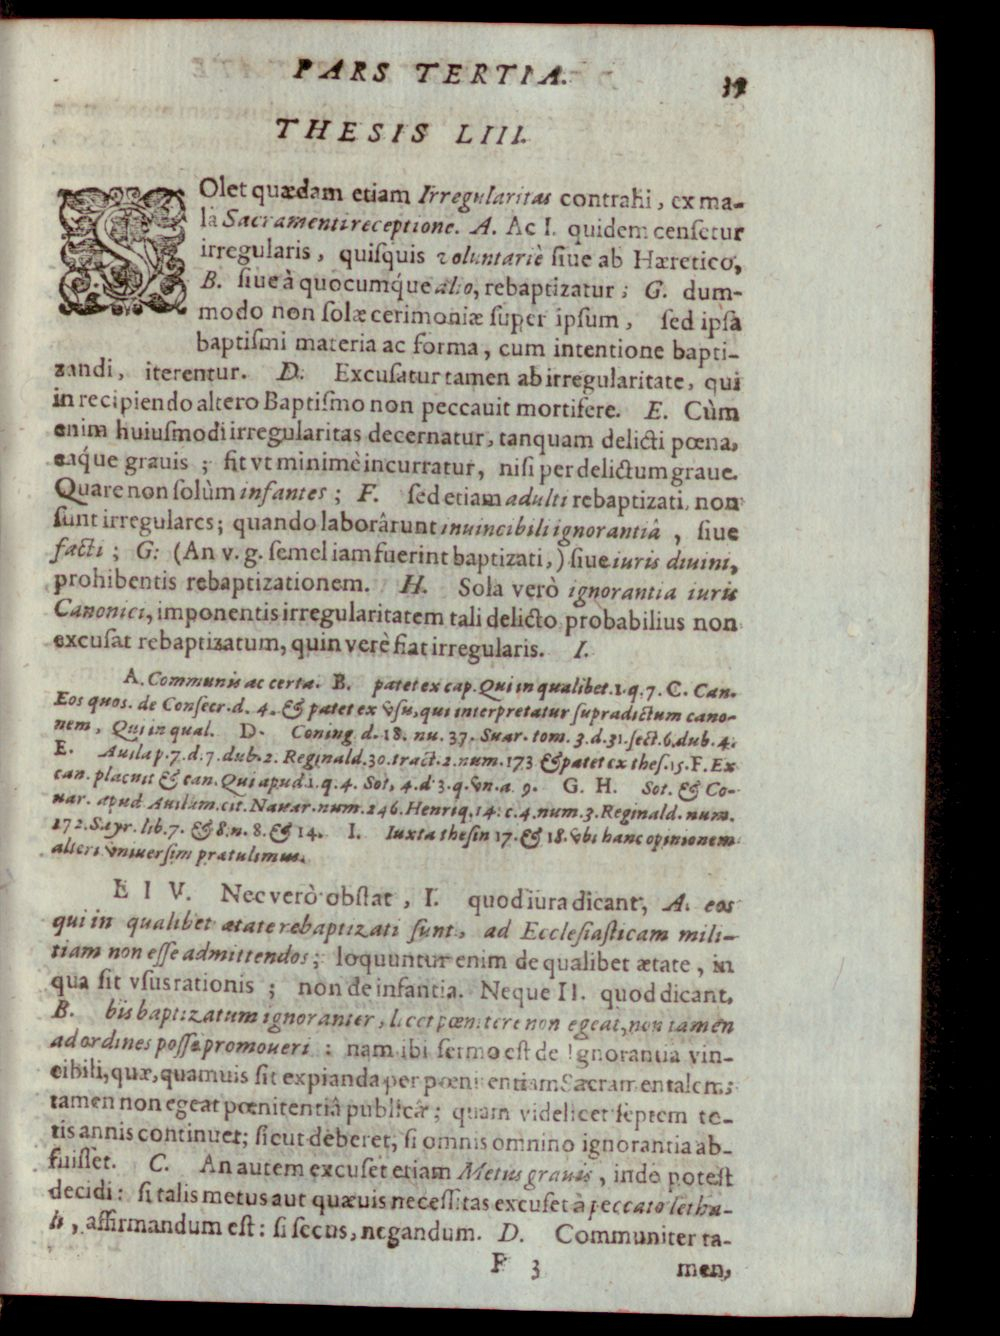 PARS TERTIA. 39
THESIS LIII.
SOlet quædam etiam Irregularitas contrahi, ex ma-
là Sacramenti receptione. A. Ac I. quidem censetur
irregularis, quisquis voluntariè siue ab Hæretico,
B. siue à quocumq́ue alio, rebaptizatur; G. dum-
modo non solæ cerimoniæ super ipsum, sed ipsa
baptismi materia ac forma, cum intentione bapti-
zandi, iterentur. D. Excusatur tamen ab irregularitate, qui
in recipiendo altero Baptismo non peccauit mortifere. E. Cùm
enim huiusmodi irregularitas decernatur, tanquam delicti pœna,
eaq́ue grauis; fit vt minimè incurratur, nisi per delictum graue.
Quare non solùm infantes; F. sed etiam adulti rebaptizati, non
sunt irregulares; quando laborârunt inuincibili ignorantiâ, siue
facti; G: (An v. g. semel iam fuerint baptizati,) siue iuris diuini,
prohibentis rebaptizationem. H. Sola verò ignorantia iuris
Canonici, imponentis irregularitatem tali delicto probabilius non
excusat rebaptizatum, quin verè fiat irregularis. I.
A. Communis ac certa. B. patet ex cap. Qui in qualibet. 1. q. 7. C. Can.
Eos quos. de Consecr. d. 4. & patet ex vsu, qui interpretatur supradictum cano-
nem, Qui in qual. D. Coning d. 18. nu. 37. Suar. tom. 3. d. 31. sect. 6. dub. 4.
E. Auila p. 7. d. 7. dub. 2. Reginald. 30. tract. 2. num. 173 & patet ex thes. 15. F. Ex
can. placuit & can. Qui apud. 1. q. 4. Sot. 4. d 3. q. vn. a. 9. G. H. Sot. & Co-
uar. apud Auilam. cit. Nauar. num. 246. Henriq. 14. c. 4. num. 3. Reginald. num.
172. Sayr. lib. 7. & 8. n. 8. & 14. I. Iuxta thesin 17. & 18. vbi hanc opinionem
alteri vniuersim prætulimus.
EIV. Nec verò obstat, I. quod iura dicant, A. eos
qui in qualibet ætate rebaptizati sunt, ad Ecclesiasticam mili-
tiam non esse admittendos; loquuntur enim de qualibet ætate, in
qua sit vsus rationis; non de infantia. Neque II. quod dicant,
B. bis baptizatum ignoranter, licet pœnitere non egeat, non tamen
ad ordines posse promoueri: nam ibi sermo est de Ignorantia vin-
cibili, quæ, quamuis sit expianda per pœnitentiam Sacramentalem;
tamen non egeat pœnitentiâ publicâ; quam videlicet septem to-
tis annis continuet; sicut deberet, si omnis omnino ignorantia ab-
fuisset. C. An autem excuset etiam Metus grauis, inde potest
decidi: si talis metus aut quæuis necessitas excuset à peccato letha-
li, affirmandum est: si secus, negandum. D. Communiter ta-
F 3 men,